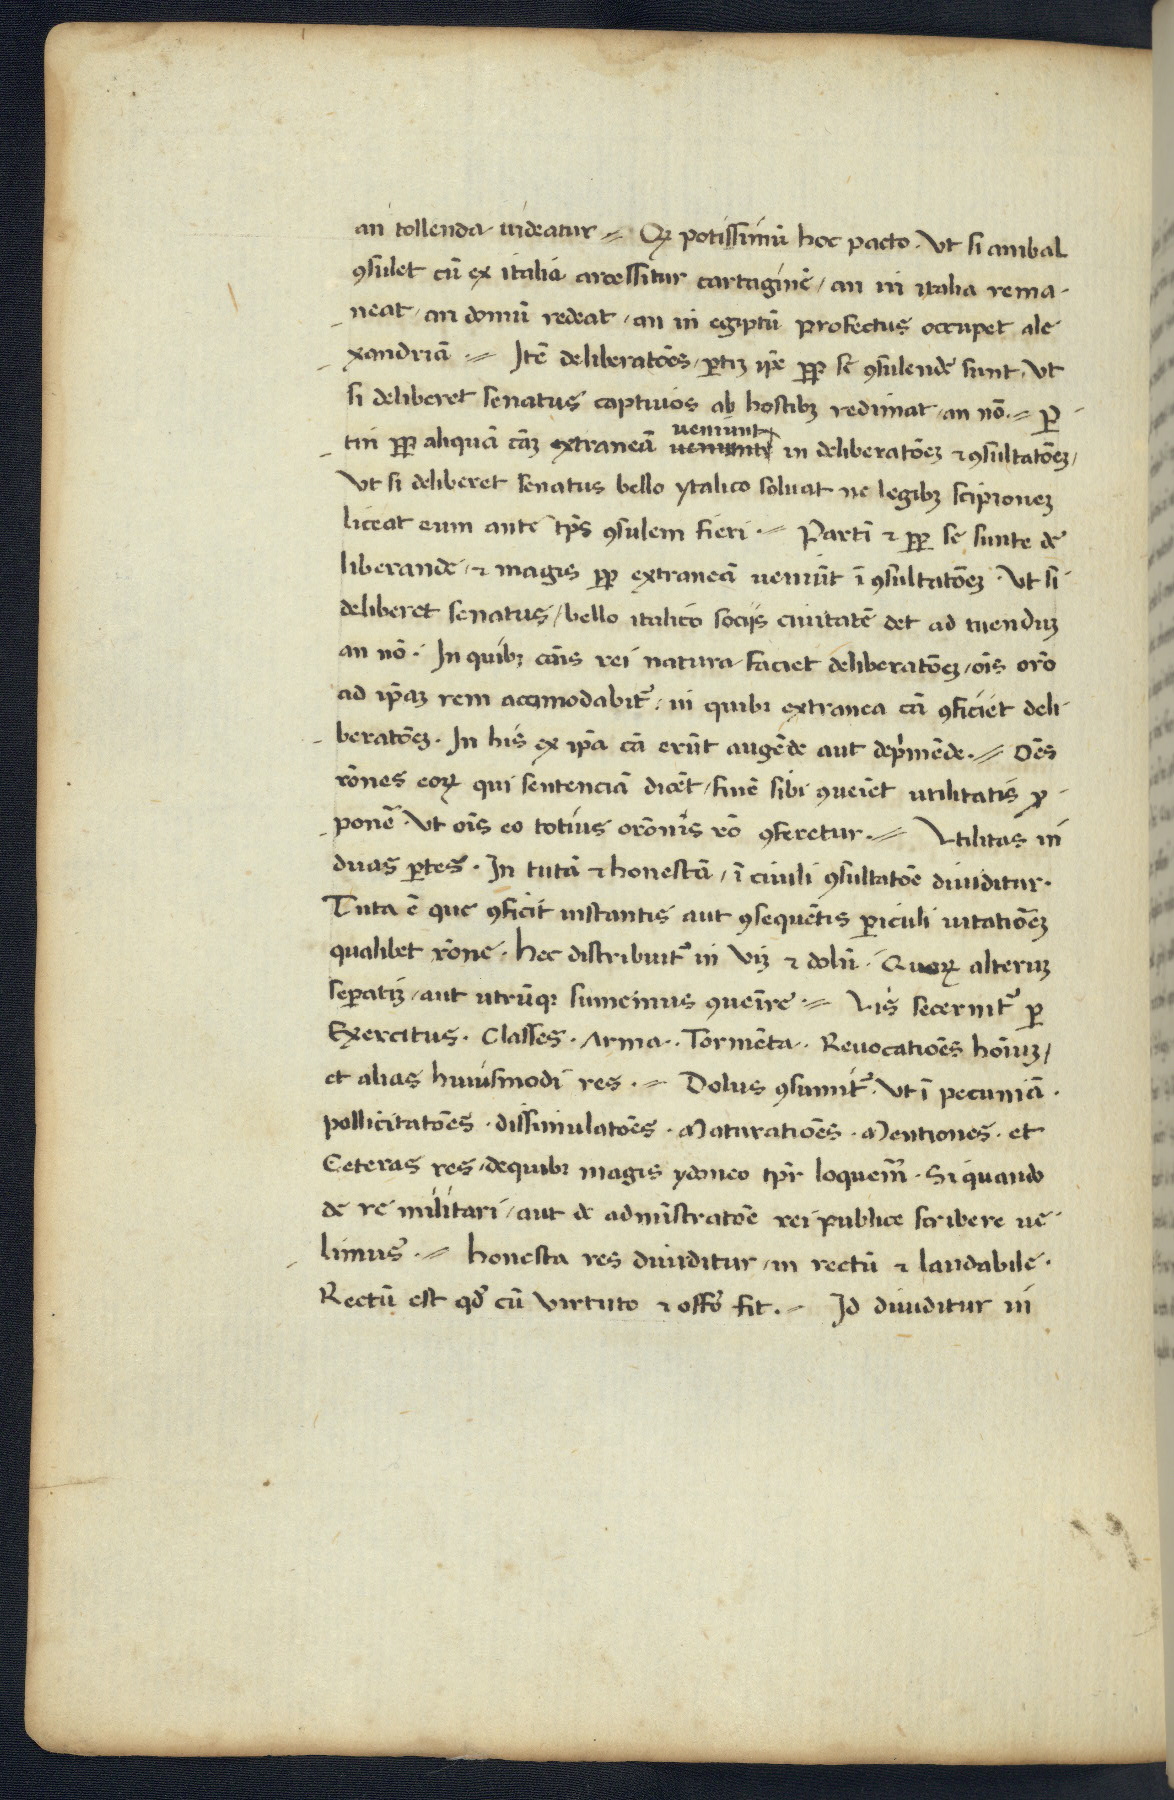 an tollenda uideatur ⹀ Qꝫ potissimū hoc pacto. Vt si anibal
ꝯsulet cū ex italia arcessitur cartaginē / an in italia rema-
neat / an domū redeat / an in egiptū profectus occupet ale
xandriā .⹀ Itē deliberatōes, ꝑtiꝫ ip̄e ꝓp̄ se ꝯsulende sunt, Vt
si deliberet senatus captiuos ab hostibꝫ redimat / an nō .⹀ ꝑ-
tin ꝓp̄ aliquā cāꝫ extraneā ueniunt in deliberatōeꝫ ⁊ ꝯsultatōeꝫ /
Vt si deliberet senatus bello ytalico soluat ne legibꝫ scipioneꝫ
liceat eum ante tp̄s ꝯsulem fieri .⹀ Partī ⁊ ꝓp̄ se sunte de
liberande / ⁊ magis ꝓp̄ extraneā ueniūt ī ꝯsultatōeꝫ . Vt si
deliberet senatus / bello italico socijs ciuitatē det ad tuenduꝫ
an nō . In quibꝫ cāis rei natura faciet deliberatōeꝫ / oīs orō
ad ip̄aꝫ rem accōmodabit᷑ / in quibꝫ extranea cā ꝯficiet deli
beratōeꝫ . In his ex ip̄a cā erūt augēde aut dep̄mēde .⹀ Oēs
rōnes eoꝝ qui sentenciā dicēt / finē sibi ꝯueīet utilitatis ꝓ-
ponē . Vt oīs eo totius orōnis rō ꝯferetur .⹀ Vtilitas in
duas ꝑtes . In tutā ⁊ honestā / ī ciuili ꝯsultatōe diuiditur .
Tuta ē que ꝯficit instantis aut ꝯsequētis ꝑiculi uitatiōeꝫ
qualibet rōne . Hec distribuit᷑ in Viꝫ ⁊ dolū . Quoꝝ alteruꝫ
seꝑatiꝫ / aut utrūqꝫ sumemus ꝯueīre .⹀ Vis secernit᷑ ꝑ
Exercitus . Classes . Arma . Tormēta . Reuocatiōes hoīuꝫ /
et alias huiusmodi res .⹀ Dolus ꝯsumit᷑ . Vt ī pecuniā .
pollicitatōes . dissimulatōes . Maturatiōes . Mentiones . et
Ceteras res / dequibꝫ magis ydoneo tp̄r loquem᷑ . Si quando
de re militari / aut de admīstratōe rei publice scribere ue
limus .⹀ Honesta res diuiditur / in rectū ⁊ laudabile .
Rectū est qd̄ cū virtuto ⁊ offō fit .⹀ Id diuiditur in